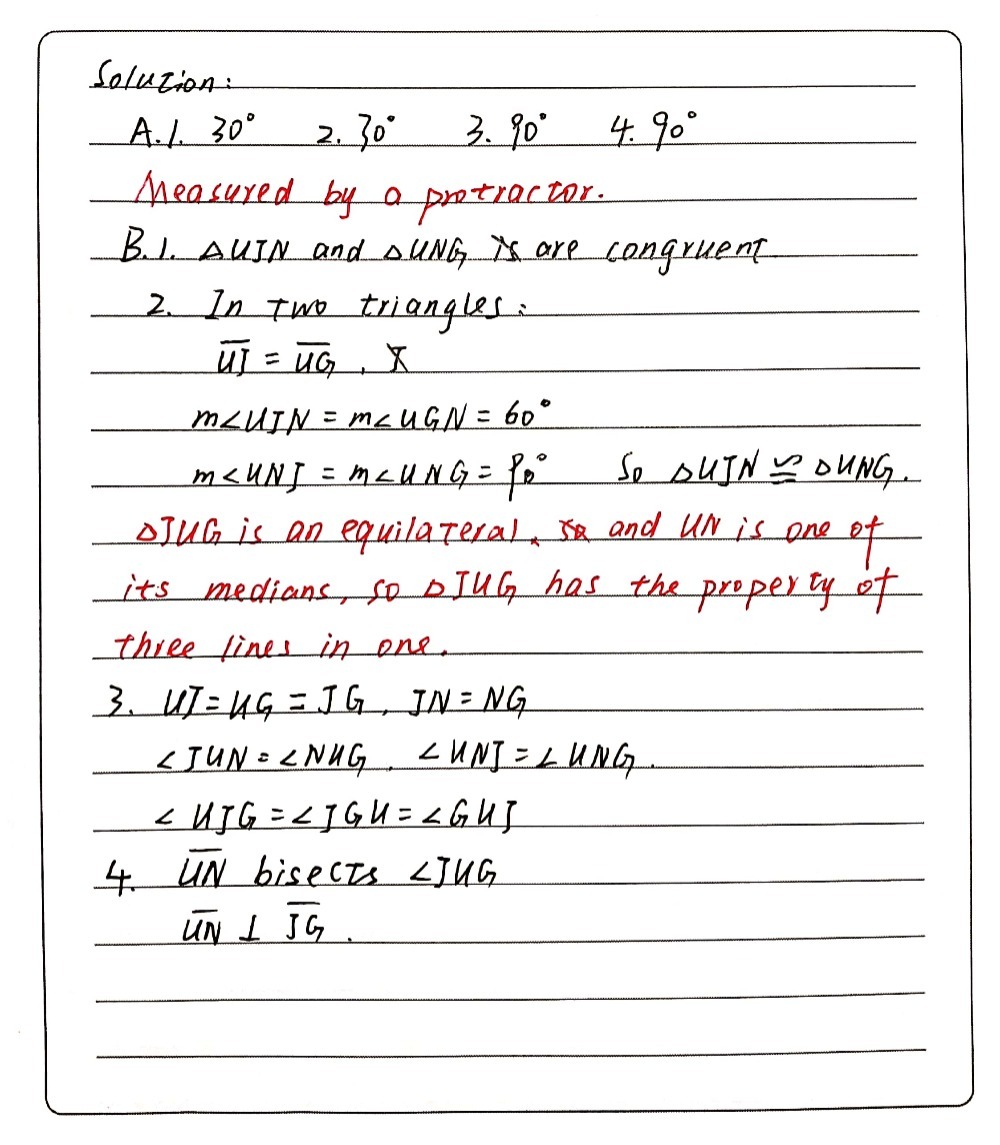 Solution:
A.1. 30° 2. 30° 3. 90° 4. 90°
Measured by a protractor.
B.1. △UJN and △UNG are congruent
2. In two triangles:
U̅J̅ = U̅G̅,
m∠UJN = m∠UGN = 60°
m∠UNJ = m∠UNG = 90° So △UJN ≌ △UNG.
△JUG is an equilateral, and UN is one of
its medians, so △JUG has the property of
three lines in one.
3. UJ=UG=JG, JN=NG
∠JUN=∠NUG, ∠UNJ=∠UNG.
∠UJG=∠JGU=∠GUJ
4. U̅N̅ bisects ∠JUG
U̅N̅ ⊥ J̅G̅.